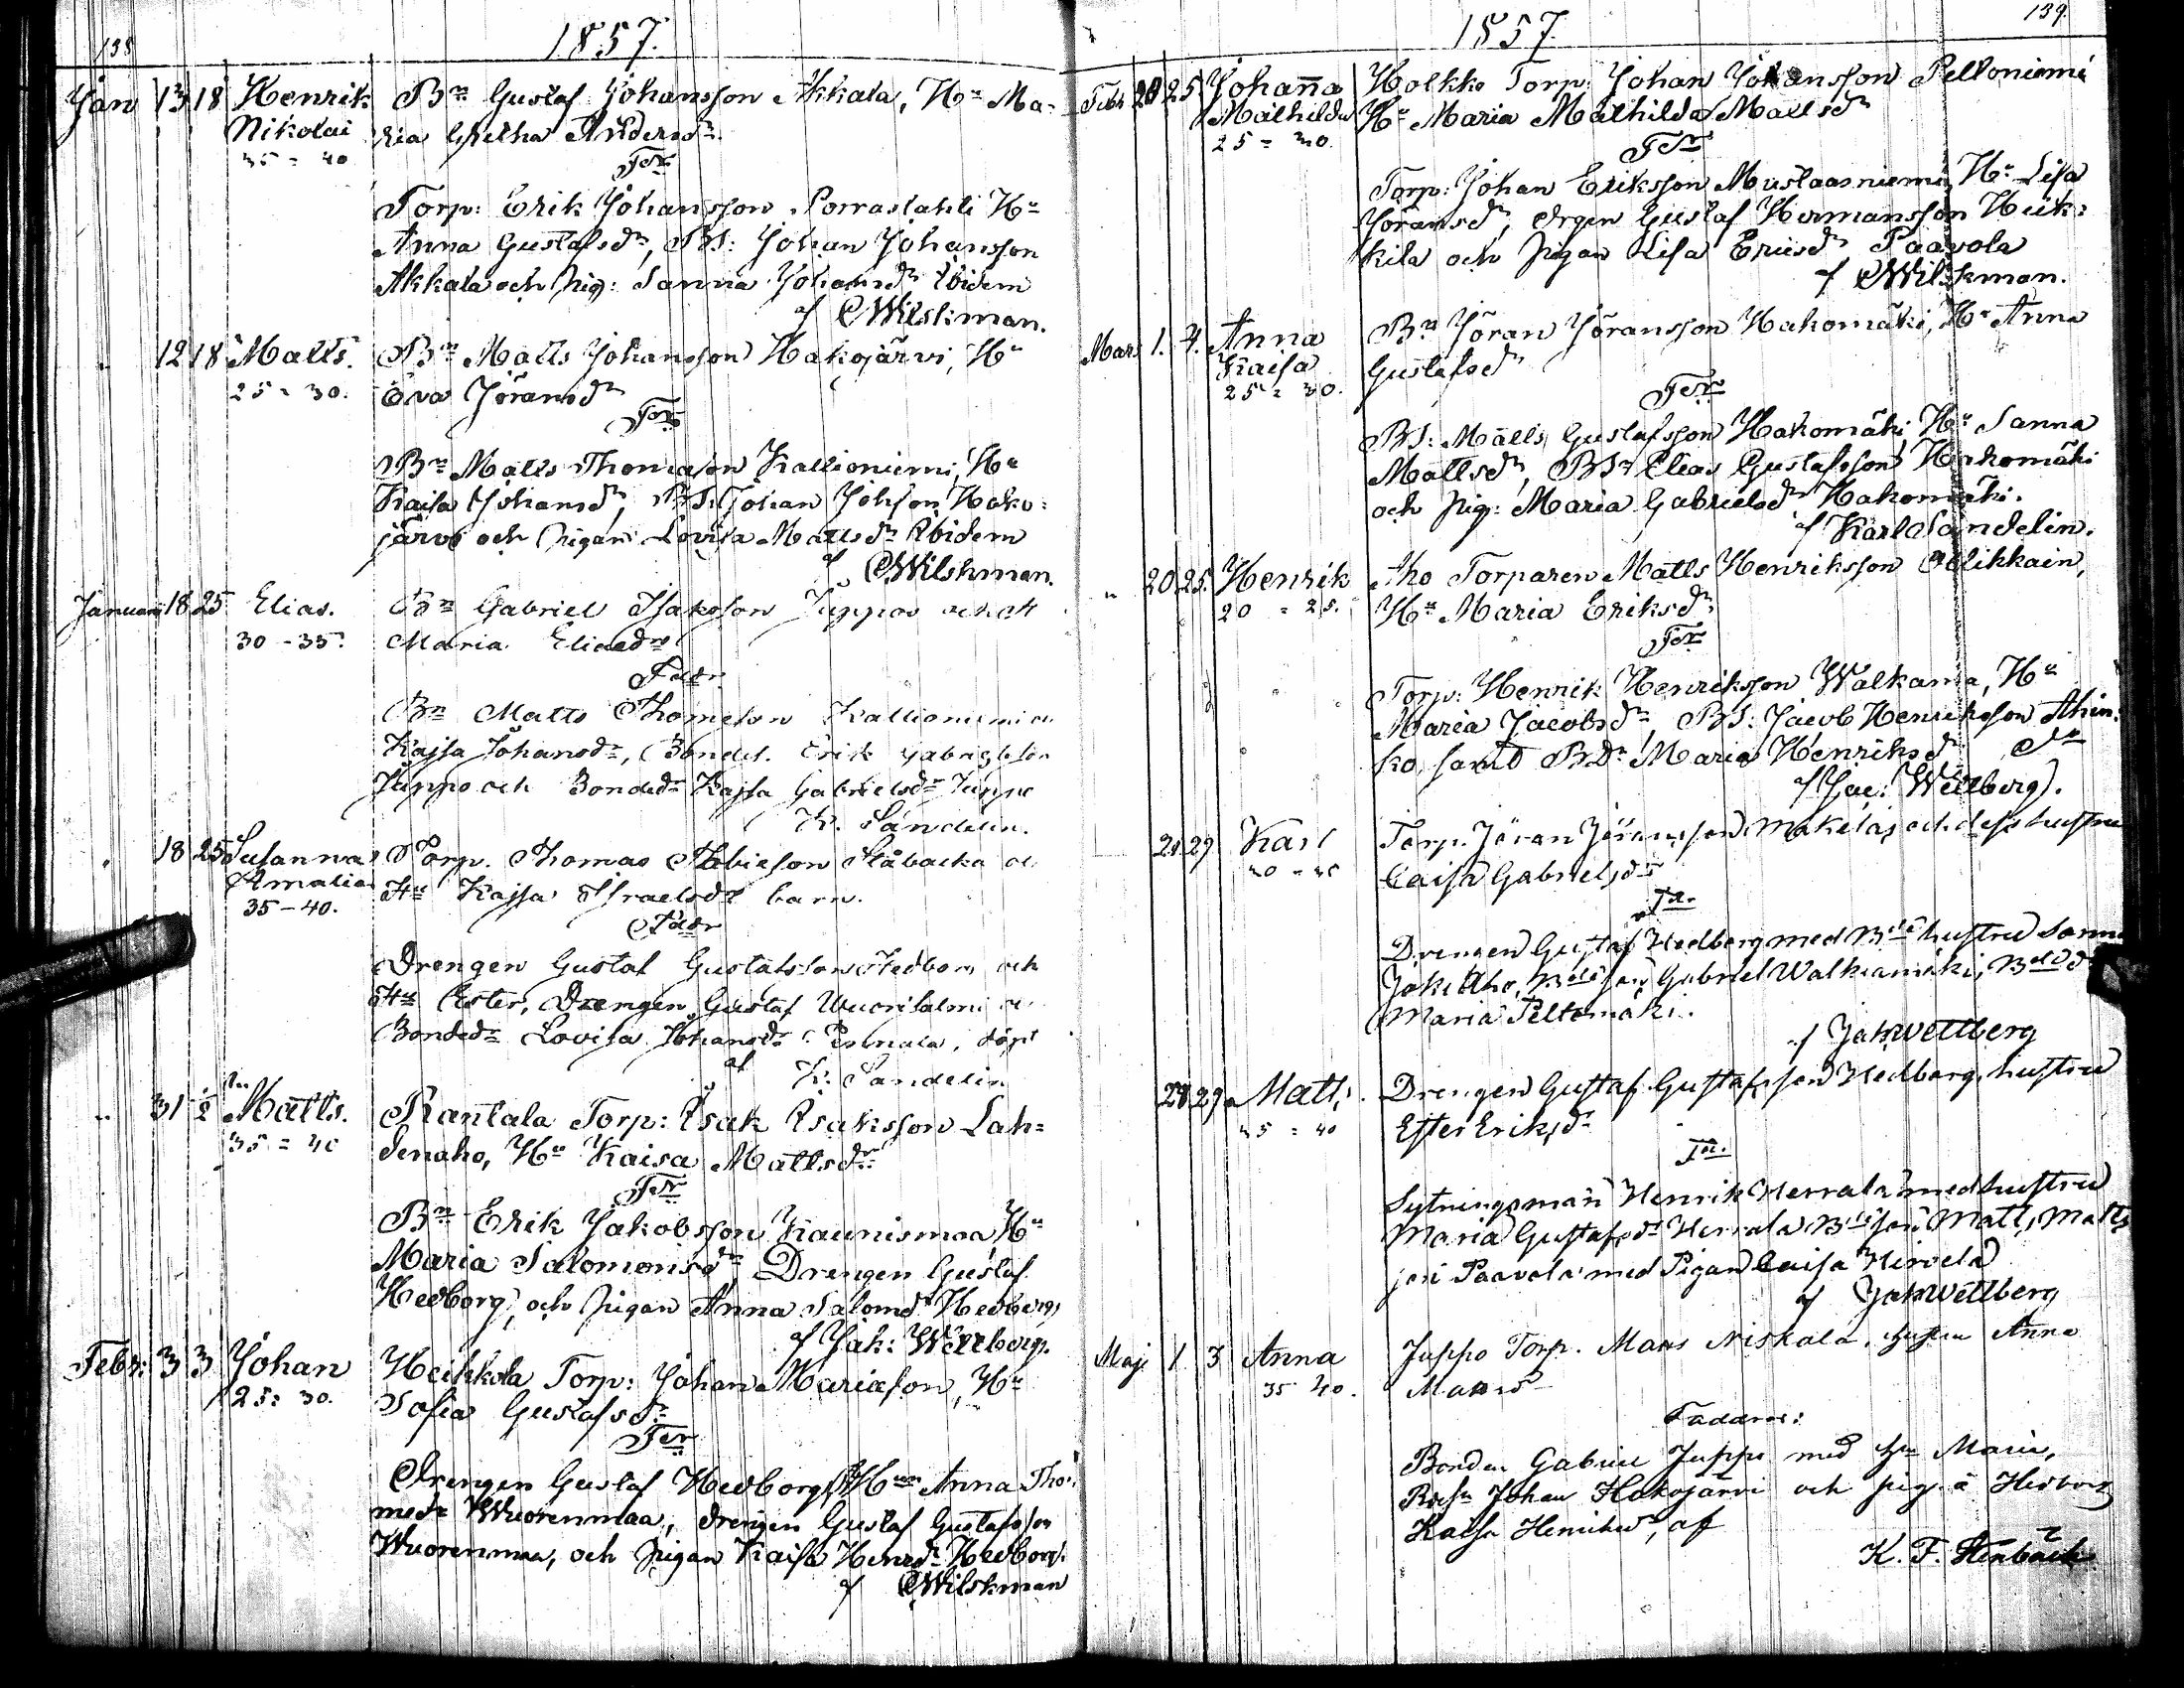 138
1857.
Jan 13 18 Henrik Bn Gustaf Johansson Akkala, Hu Ma-
Nikolai ria Gretha Andersdr
35 = 40 Fdr
Torp: Erik Johansson Porraslahti Hu
Anna Gustafsdr, BS: Johan Johansson
Akkala och pig: Sanna Johansdr Ibidem
af Wilskman.
" 12 18 Matts. Bn Matts Johansson Hakojärvi, Hu
25 = 30. Eva Jöransdr
Fdr
Bn Matts Thomasson Kallioniemi, Hu
Kaisa Johansdr, BS. Johan Johsson Hako=
järvi och pigan Lovisa Mattsdr Ibidem
af Wilskman.
Januari 18 25 Elias. Bn Gabriel Isaksson Juppos och H
30 - 35. Maria Eliaedr
Fadr
Bn Matts Thomeson Kallioniemi o
Kajsa Johansdr, Bondes. Erik Gabrielson
Juppo och Bondedr Kajsa Gabrielsdr Juppo
K. Sandelin.
" 18 25 Susanna Torp. Thomas Tobieson Slåbacka oc
Amalia Hu Kajsa Israelsdr barn.
35 - 40. Fadr
Drengen Gustaf Gustafsson Hedborg och
Hu Ester, Drengen Gustaf Wuorisalmi o
Bondedr Lovisa Johansdr Permala, döpt
af K. Sandelin
" 31 1/2 Matts. Rantala Torp: Isak Isaksson Lah=
35 = 40 denaho, Hu Kaisa Mattsdr
Fdr
Bn Erik Jakobsson Kaunismaa, Hu
Maria Salomonsdr, Drengen Gustaf
Hedborg, och pigan Anna Salomdr Hedberg,
af Jak: Wettberg.
Febr: 3 3 Johan Heikkola Torp: Johan Mariason, Hu
25 = 30. Sofia Gustafsdr
Fdr
Drengen Gustaf Hedborg, Hun Anna Tho=
medr Wuorenmaa, drengen Gustaf Gustafsson
Wuorenmaa, och pigan Kaisa Henrdr Hedborg.
af Wilskman
139.
1857.
Febr 20 25 Johanna Holkko Torp: Johan Johansson Peltoniemi
Mathilda Hu Maria Mathilda Mattsdr
25 = 30. Fdr
Torp: Johan Eriksson Mustaasniemi, Hu Lisa
Jöransdr, drgen Gustaf Hermansson Heik=
kilä och pigan Lisa Ericsdr Paavola
af Wilskman.
Mars 1. 4. Anna Bn Jöran Jöransson Hakomäki, Hu Anna
Kaisa Gustafsdr
25 = 30. Fdr
BS: Matts Gustafsson Hakomäki, Hu Sanna
Mattsdr, BSn Elias Gustafsson Hakomäki
och pig: Maria Gabrielsdr Hakomäki.
af Karl Sandelin.
" 20 25. Henrik Aho Torparen Matts Henriksson Ollikkain,
20 = 25. Hu Maria Eriksdr
Fdr
Torp: Henrik Henriksson Walkama, Hu
Maria Jacobsdr, BS: Jacob Henriksson Ahin=
ko, samt BDr Maria Henriksdr
af Jac: Wettberg.
29 Karl Torp. Jöran Jöransson Mäkelä, och dess hustru
Caisa Gabrielsdr
Fdr
Drengen Gustaf Hedberg med hustru Sanna
Jokiaho, son Gabriel Walkiamäki,
Maria Peltomäki.
af Jak Wettberg
28 29 Matts. Drengen Gustaf Gustafsson Hedborg, hustru
35 = 40 Ester Eriksdr
Fdr.
Sytningsman Henrik Herrala med hustru
Maria Gustafsdr Herrala Matts Matts
son Paavola med Pigan Caisa Hirvelä
af Jak Wettberg
Maji 1 3 Anna Juppo Torp. Mats Niskala, hustru Anna
35 40. Matsdr
Faddrar:
Bonden Gabriel Juppo med hu Maria,
Johan Hakojärvi och pig. å Hedborg
Kaisa Henriksdr, af
K. F. Stenbäck